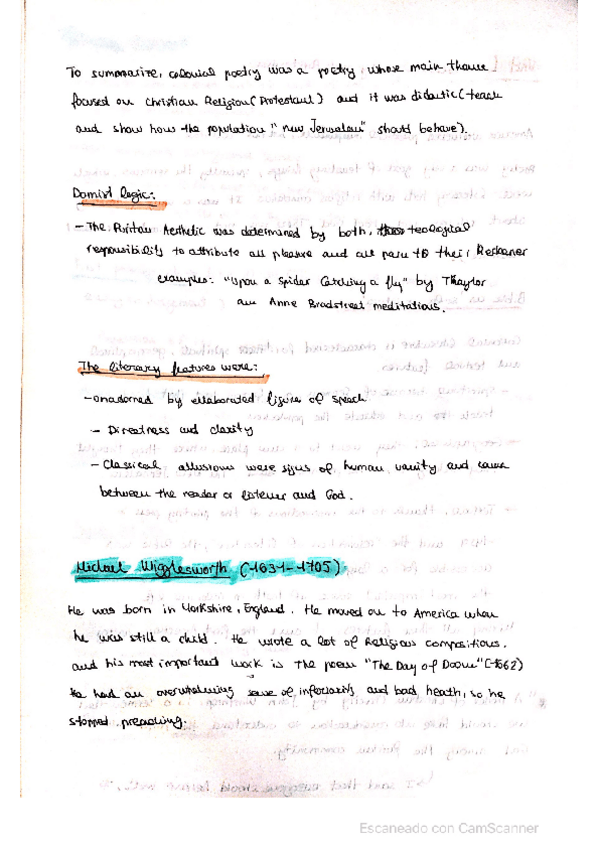 To summarize, colonial poetry was a poetry whose main theme
focused on Christian Religion (Protestant) and it was didactic (teach
and show how the population "new Jerusalem" should behave).
Damist logic:
- The Puritan Aesthetic was determined by both, teological
responsibility to attribute all pleasure and all pain to their Redeemer
examples: "Upon a Spider Catching a fly" by Thaylor
an Anne Bradstreet meditations.
The literary features were:
- onadorned by ellaborated figure of speech
- Directness and clarity
- Classical allusions were signs of human vanity and came
between the reader or listener and God.
Michael Wigglesworth (1631-1705)
He was born in Yorkshire, England. He moved on to America when
he was still a child. He wrote a lot of Religious compositions.
and his most important work is the poem "The Day of Doom" (1662)
He had an overwhelming sense of inferiority and bad heath, so he
stopped preaching.
Escaneado con CamScanner